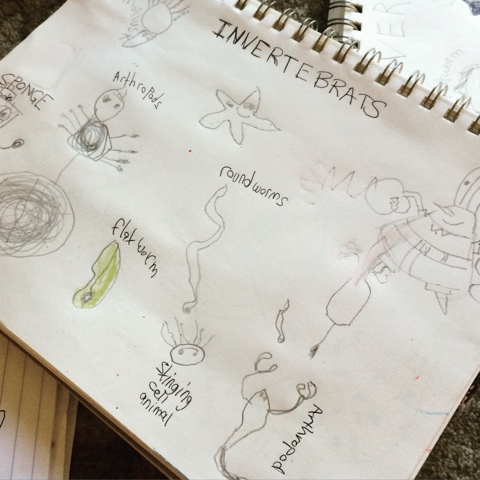 INVERTEBRATS
SPONGE
Arthropods
roundworms
flat worm
Stinging
cell
animal
Arthropod